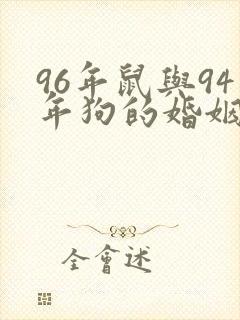 96年鼠與94
年狗的婚姻
全會述